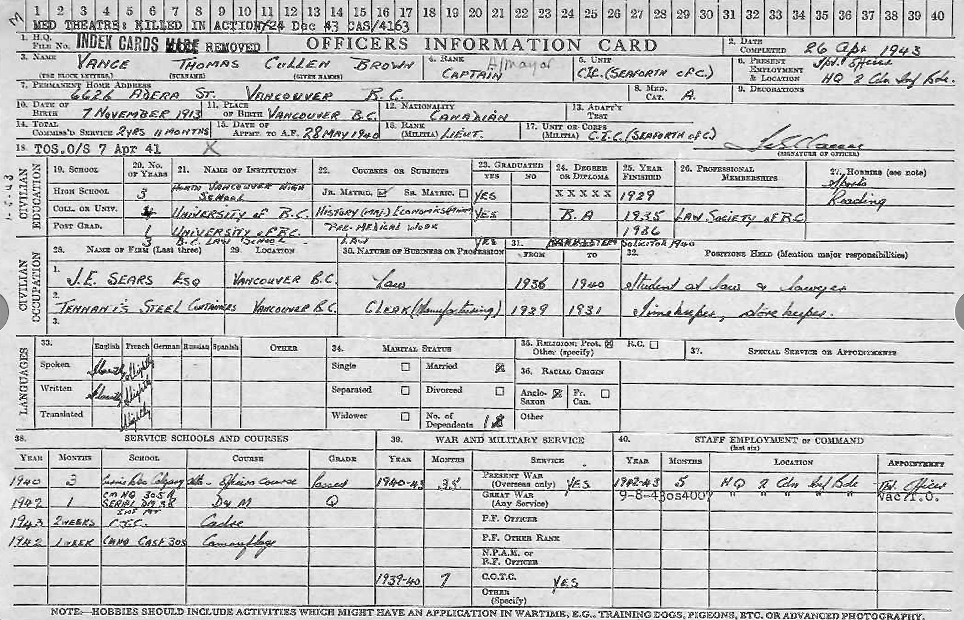 1 2 3 4 5 6 7 8 9 10 11 12 13 14 15 16 17 18 19 20 21 22 23 24 25 26 27 28 29 30 31 32 33 34 35 36 37 38 39 40
M MED THEATRE: KILLED IN ACTION 24 Dec 43 CAS/4163
1. H.Q. FILE NO. INDEX CARDS MADE REMOVED OFFICERS INFORMATION CARD 2. DATE COMPLETED 26 Apr 1943
3. NAME VANCE THOMAS CULLEN BROWN 4. RANK CAPTAIN A/Mayor 5. UNIT C.I.C. (SEAFORTH OF C.) 6. PRESENT EMPLOYMENT & LOCATION Tpt. Officer HQ 2 Cdn Inf Bde.
(IN BLOCK LETTERS) (SURNAME) (GIVEN NAMES)
7. PERMANENT HOME ADDRESS 6626 ADERA ST. VANCOUVER B.C. 8. MED. CAT. A. 9. DECORATIONS
10. DATE OF BIRTH 7 NOVEMBER 1913 11. PLACE OF BIRTH VANCOUVER B.C. 12. NATIONALITY CANADIAN 13. ADAPT'Y TEST
14. TOTAL COMMIS'D SERVICE 2 YRS 11 MONTHS 15. DATE OF APPMT. TO A.F. 28 MAY 1940 16. RANK (MILITIA) LIEUT. 17. UNIT OR CORPS (MILITIA) C.I.C. (SEAFORTH OF C)
18 TOS.O/S 7 Apr 41 X (SIGNATURE OF OFFICER)
CIVILIAN EDUCATION
19. SCHOOL 20. NO. OF YEARS 21. NAME OF INSTITUTION 22. COURSES OR SUBJECTS 23. GRADUATED YES NO 24. DEGREE OR DIPLOMA 25. YEAR FINISHED 26. PROFESSIONAL MEMBERSHIPS 27. HOBBIES (see note)
HIGH SCHOOL 3 NORTH VANCOUVER HIGH SCHOOL JR. MATRIC. SR. MATRIC. YES X X X X X 1929 Sports Reading
COLL. OR UNIV. 4 UNIVERSITY OF B.C. HISTORY (MAJ.) ECONOMICS (MINOR) YES B.A 1935 LAW SOCIETY OF B.C.
POST GRAD. 1 UNIVERSITY OF B.C. PRE-MEDICAL WORK 1936
3 B.C. LAW SCHOOL LAW YES BARRISTER & SOLICITOR 1940
CIVILIAN OCCUPATION
28. NAME OF FIRM (Last three) 29. LOCATION 30. NATURE OF BUSINESS OR PROFESSION 31. FROM TO 32. POSITIONS HELD (Mention major responsibilities)
1. J.E. SEARS ESQ VANCOUVER B.C. Law 1936 1940 Student at law & Lawyer
2. TENNANT'S STEEL CONTAINERS VANCOUVER B.C. CLERK (Manufacturing) 1929 1931 Timekeeper, storekeeper.
3.
LANGUAGES
33. English French German Russian Spanish OTHER 34. MARITAL STATUS 35. RELIGION: Prot. R.C. Other (specify) 37. SPECIAL SERVICE OR APPOINTMENTS
Spoken Fluently Slightly Single Married 36. RACIAL ORIGIN
Written Fluently Slightly Separated Divorced Anglo-Saxon Fr. Can.
Translated Slightly Widower No. of Dependents 1 Other
38. SERVICE SCHOOLS AND COURSES 39. WAR AND MILITARY SERVICE 40. STAFF EMPLOYMENT OR COMMAND (last six)
YEAR MONTHS SCHOOL COURSE GRADE YEAR MONTHS SERVICE YEAR MONTHS LOCATION APPOINTMENT
1940 3 Calgary Alta - Officers course Passed 1940-43 35 PRESENT WAR (Overseas only) YES 1942-43 5 HQ 2 Cdn Inf Bde Tpt. Officer
1942 1 CMHQ 305 A SERIAL DM 38 D & M Q GREAT WAR (Any Service) 9-8-43 os4007 " " " " Vac/T.O.
1943 2 WEEKS Cadre P.F. OFFICER
1942 1 WEEK CMHQ CASF 305 Camouflage P.F. OTHER RANK
N.P.A.M. OR R.F. OFFICER
1939-40 7 C.O.T.C. YES
OTHER (Specify)
NOTE:—HOBBIES SHOULD INCLUDE ACTIVITIES WHICH MIGHT HAVE AN APPLICATION IN WARTIME, E.G., TRAINING DOGS, PIGEONS, ETC. OR ADVANCED PHOTOGRAPHY.